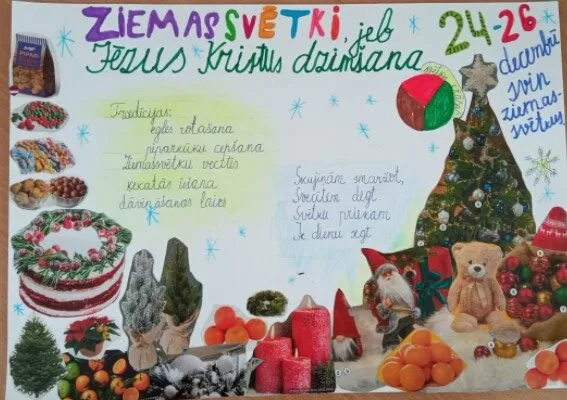 ZIEMASSVĒTKI, jeb
Jēzus Kristus dzimšana
24-26
decembrī
svin
ziemas-
svētkus
Tradīcijas:
egles rotāšana
piparkūku cepšana
Ziemassvētku vecītis
ķekatās iešana
dāvināšanas laiks
Skujiņām smaržot,
Svecītēm degt
Svētku priekam
Ik dienu segt